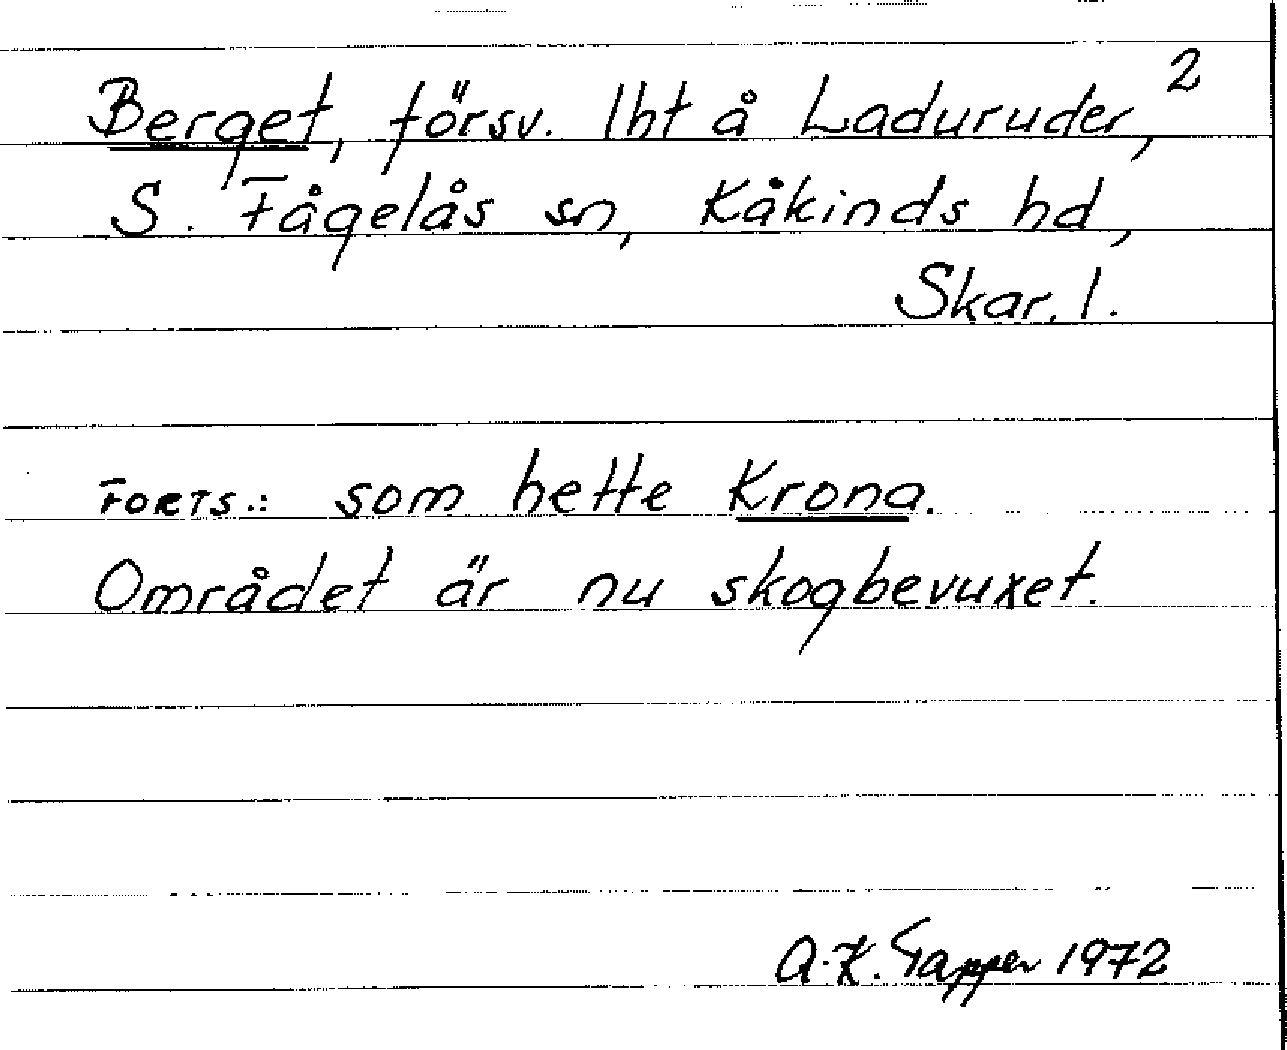 2
Berget, försv. lht å Laduruder,
S. Fågelås sn, Kåkinds hd,
Skar. l.
FORTS.: som hette Krona.
Området är nu skogbevuxet.
A.K. Tapper 1972